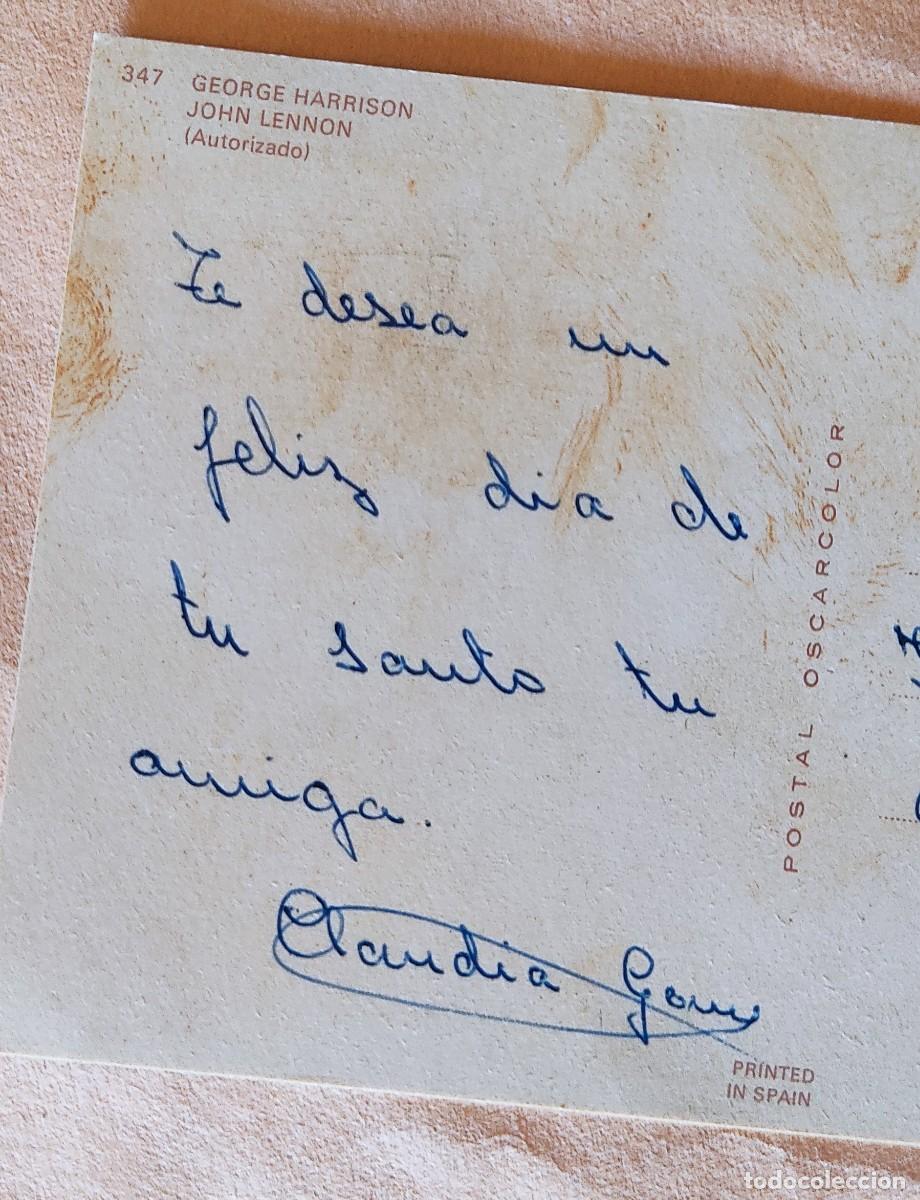 347 GEORGE HARRISON
JOHN LENNON
(Autorizado)
Te desea un
feliz dia de
tu santo tu
amiga.
Claudia
POSTAL OSCARCOLOR
PRINTED
IN SPAIN
todocoleccion